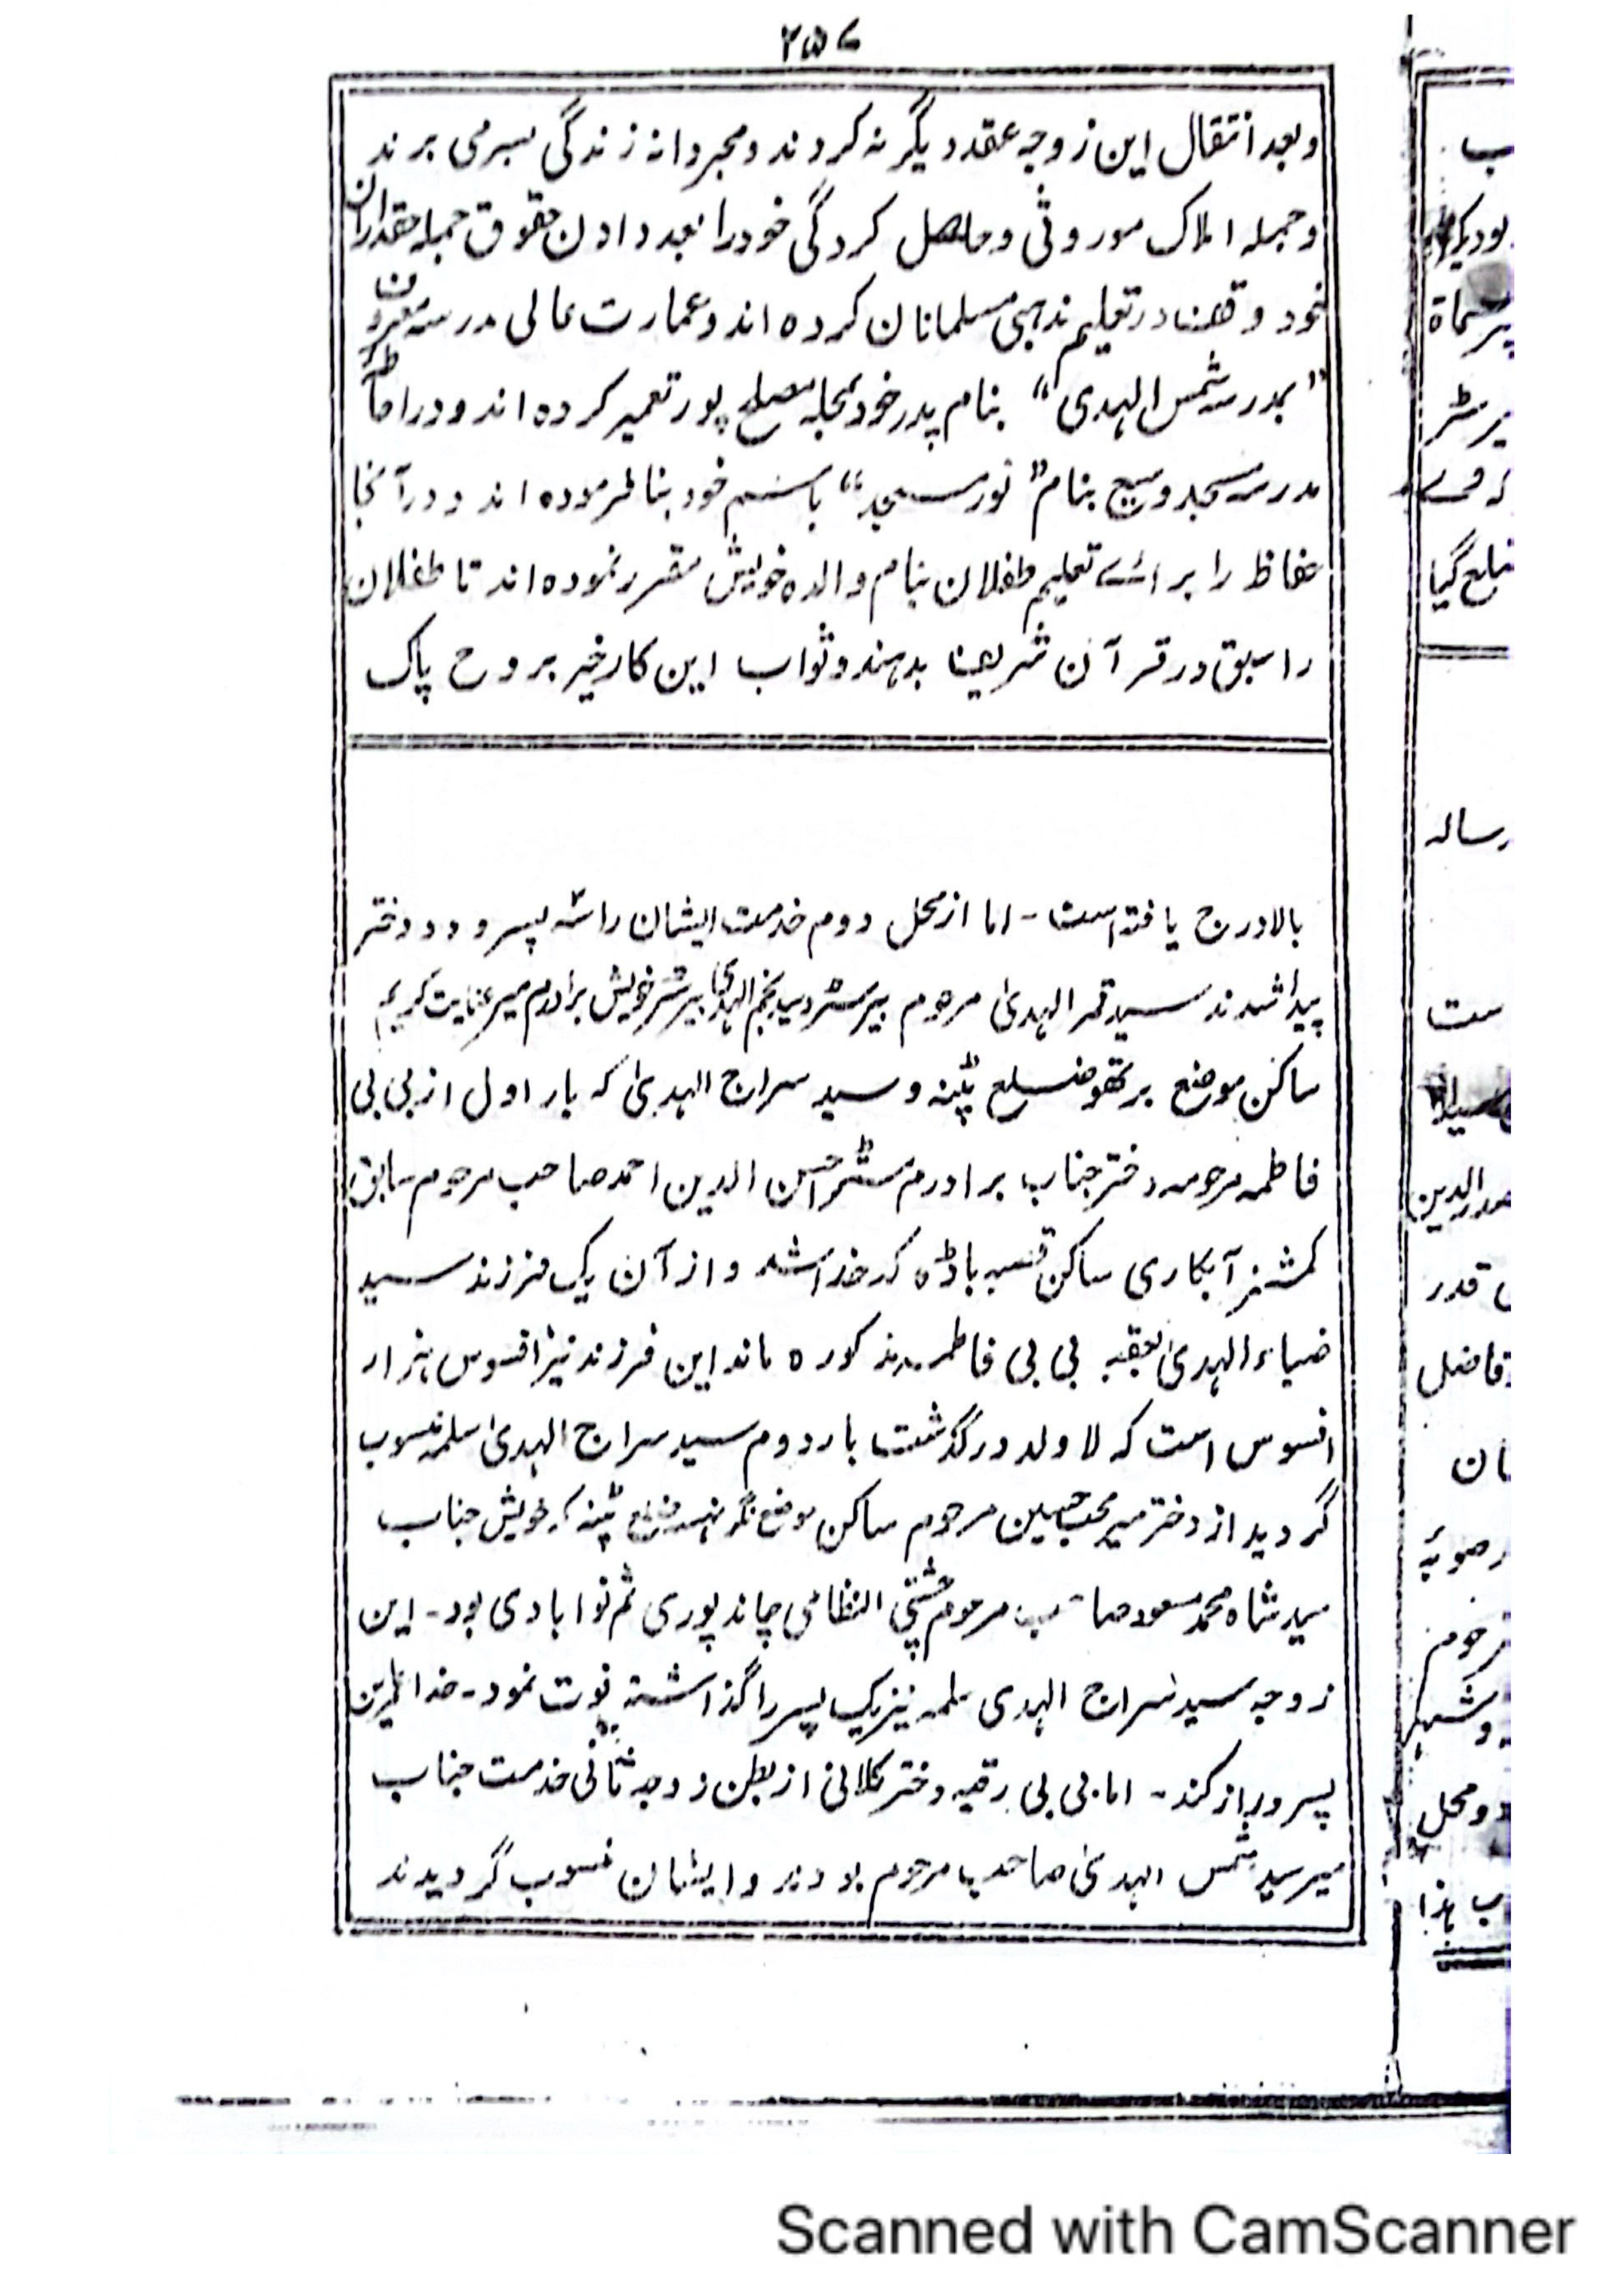 ۲۵۷
وبعد انتقال این زوجه عقد دیگر نه کردند و مجردانه زندگی بسر می برند
وجمله املاک موروثی وحاصل کردگی خود را بعد دادن حقوق جمله حقداران
خود وقف در تعلیم مذهبی مسلمانان کرده اند وعمارت عالی مدرسه معروف
”بمدرسه شمس الهدی“ بنام پدر خود بمحله مصلح پور تعمیر کرده اند و در احاطه
مدرسه مسجد وسیع بنام ”نور مسجد“ باسم خود بنا فرموده اند و در آنجا
حفاظ را برائے تعلیم طفلان بنام والده خویش مقرر نموده اند تا طفلان
را سبق در قرآن شریف بدهند وثواب این کار خیر بروح پاک
بالا درج یافته است - اما از محل دوم خدمت ایشان را سه پسر و دو دختر
پیدا شدند سید قمر الهدیٰ مرحوم بیرسٹر و سید نجم الهدیٰ بیرسٹر خویش برادرم میر عنایت کریم
ساکن موضع برتھو ضلع پٹنه و سید سراج الهدیٰ که بار اول از بی بی
فاطمه مرحومه دختر جناب برادرم مسٹر احسن الدین احمد صاحب مرحوم سابق
کمشنر آبکاری ساکن قصبه باڑه کدخدا شد و از آن یک فرزند سید
ضیاء الهدیٰ بعقبه بی بی فاطمه مذکوره ماند این فرزند نیز افسوس هزار
افسوس است که لا ولد درگذشت بار دوم سید سراج الهدیٰ سلمه منسوب
گردید از دختر میر محب حسین مرحوم ساکن موضع نگرنهسه ضلع پٹنه که خویش جناب
سید شاه محمد مسعود صاحب مرحوم چشتی النظامی چاندپوری ثم نوابادی بود - این
زوجه سید سراج الهدی سلمه نیز یک پسر را گذاشته فوت نمود - خدا عمر این
پسر دراز کند - اما بی بی رقیه دختر کلانی از بطن زوجه ثانی خدمت جناب
میر سید شمس الهدیٰ صاحب مرحوم بودند و ایشان منسوب گردیدند
رساله
ست
قدر
فاضل
Scanned with CamScanner